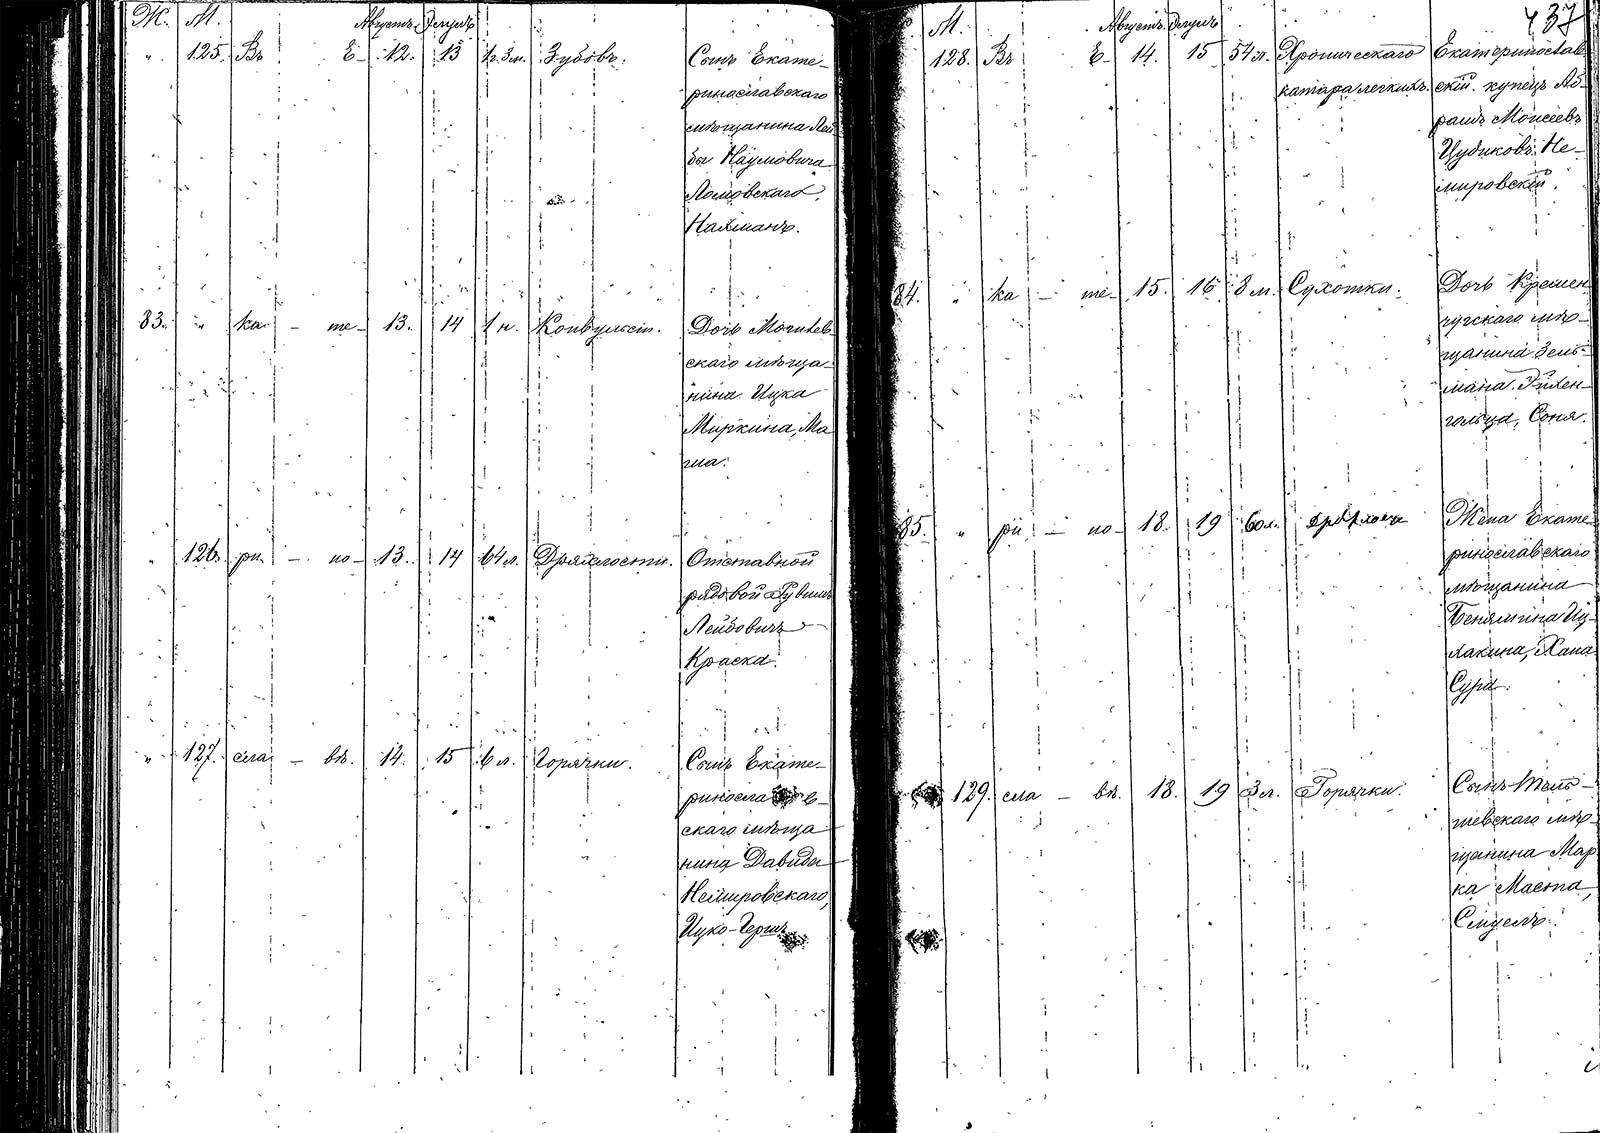 Ж. М. Августъ Элулъ
" 125. Въ Е- 12. 13 1 г. 3 м. Зубовъ. Сынъ Екате-
ринославскаго
мѣщанина Лей
бы Наумовича
Ломовскаго,
Нахманъ.
83. " ка - те- 13. 14 1 н. Конвульсіи. Дочь Могилев
скаго мѣща-
нина Ицка
Миркина, Ма
ша.
" 126. ри - но- 13. 14 64 л. Дряхлости. Отставной
рядовой Рувинъ
Лейбовичъ
Краска.
" 127. сла - вѣ. 14. 15 6 л. Горячки. Сынъ Екате-
ринославв-
скаго мѣща
нина Давида
Немировскаго,
Ицко-Гершъ
437
М. Августъ. Элулъ
128. Въ Е- 14. 15 54 л. Хроническаго Екатеринослав
катара легкихъ. скій купецъ Аб-
рамъ Моисеевъ
Цудиковъ Не-
мировскій.
84. " ка - те- 15. 16 8 м. Сухотки. Дочь Кремен
чугскаго мѣ-
щанина Зель-
мана Рихен-
гольца, Соня.
85. " ри - но- 18. 19 60 л. Дряхлости Жена Екате
ринославскаго
мѣщанина
Бенямина Иц-
хакина, Хана
Сура.
129. сла - вѣ. 18. 19 3 л. Горячки. Сынъ Тель-
шевскаго мѣ-
щанина Мар
ка Маста,
Смуелъ.